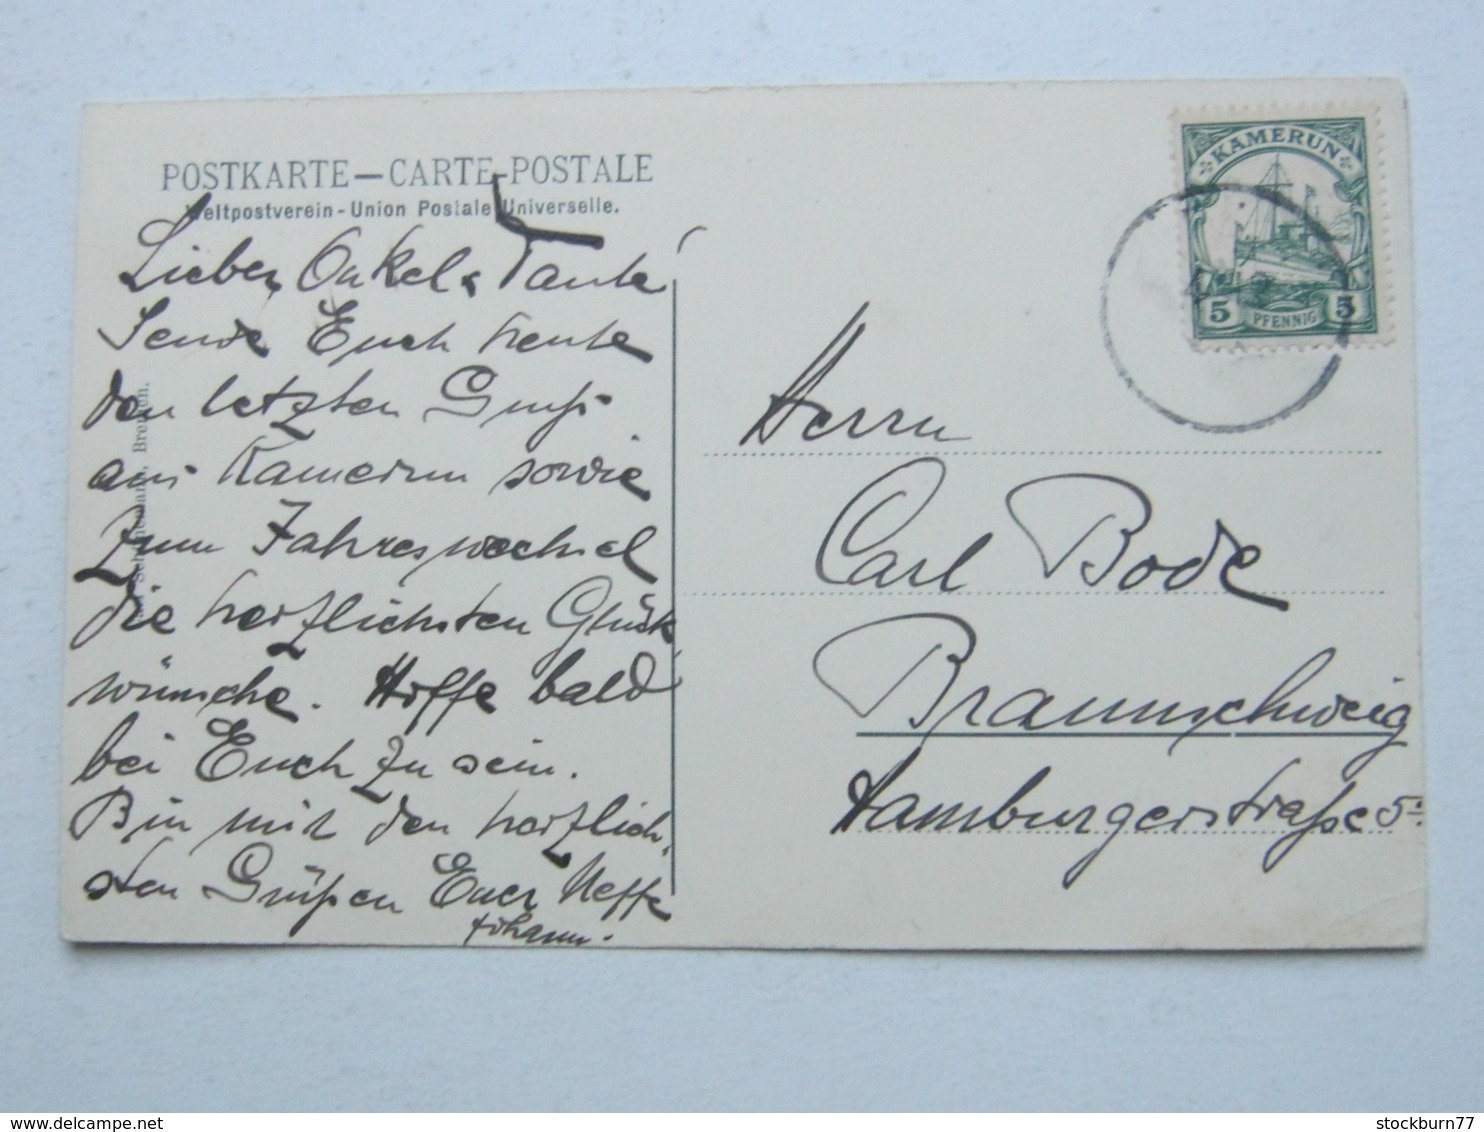 POSTKARTE — CARTE-POSTALE
Weltpostverein - Union Postale Universelle.
Lieber Onkel & Tante
Sende Euch heute
den letzten Gruß
aus Kamerun sowie
zum Jahreswechsel
die herzlichsten Glück
wünsche. Hoffe bald
bei Euch zu sein.
Bin mit den herzlich-
sten Grüßen Euer Neffe
Johann.
KAMERUN
5 PFENNIG 5
Herrn
Carl Bode
Braunschweig
Hamburgerstraße
Bremen.
delcampe.net
stockburn77